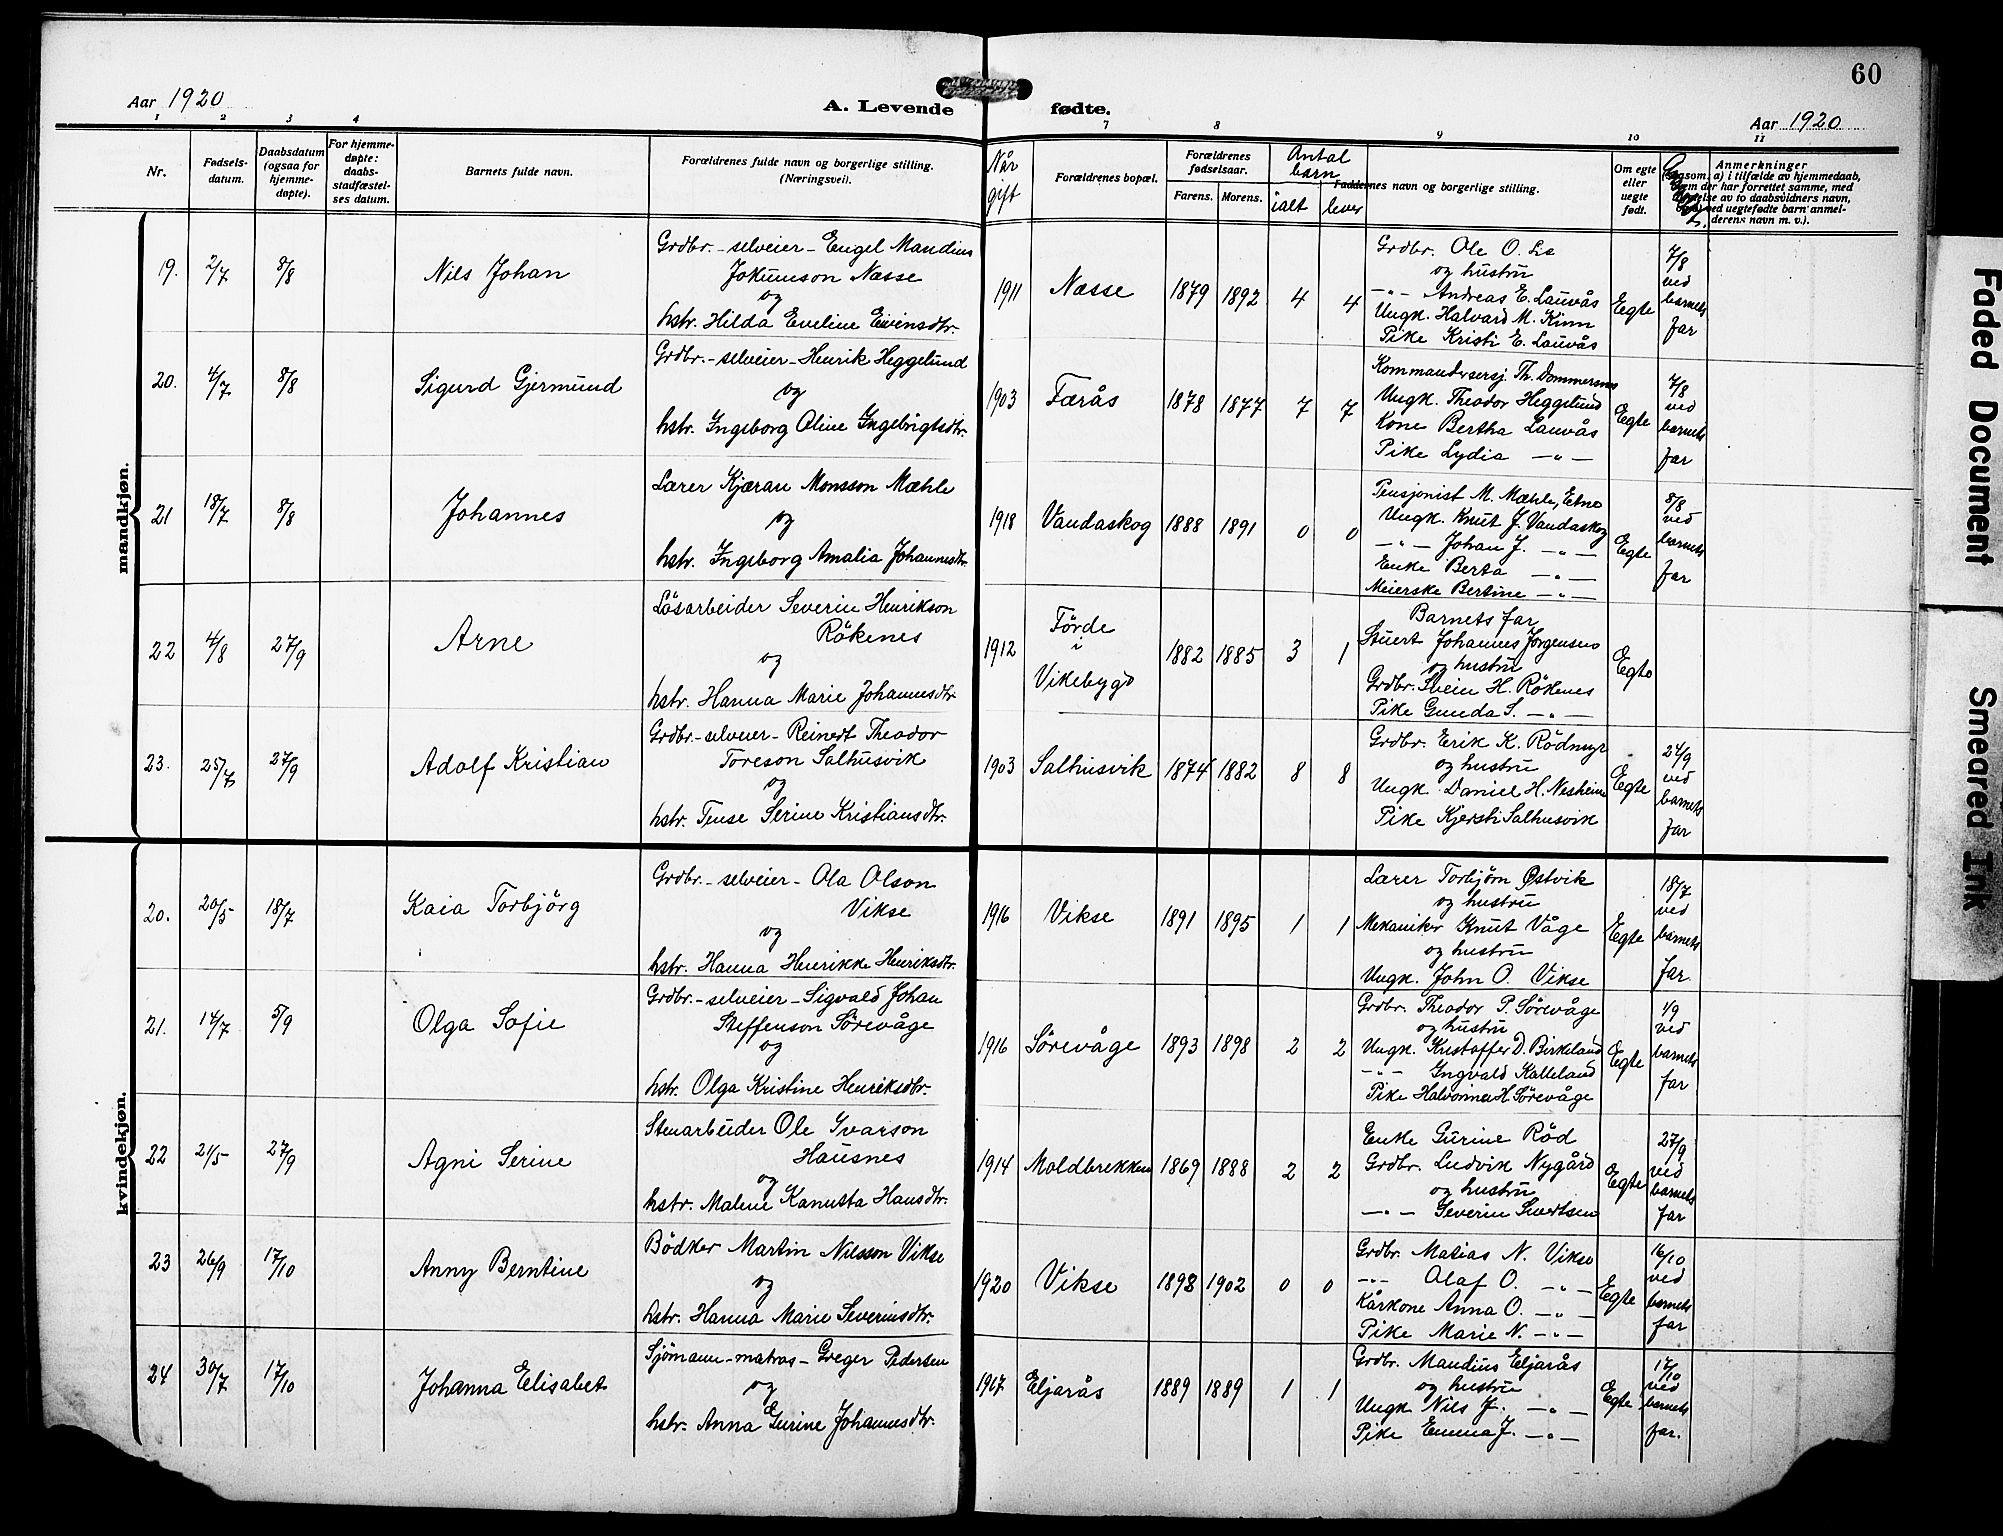 60
Aar 1920
A. Levende fødte.
Aar 1920
1 2 3 4 7 8 9 10 11
Nr.
Fødsels-
datum.
Daabsdatum
(ogsaa for
hjemme-
døpte).
For hjemme-
døpte:
daabs-
stadfæstel-
ses datum.
Barnets fulde navn.
Forældrenes fulde navn og borgerlige stilling.
(Næringsvei).
Når
gift
Forældrenes bopæl.
Forældrenes
fødselsaar.
Farens. Morens.
Antal
barn
ialt lever
Faddernes navn og borgerlige stilling.
Om egte
eller
uegte
født.
Anmerkninger
(saasom: a) i tilfælde av hjemmedaab,
hvem der har forrettet samme, med
av to daabsvidners navn,
ved uegtefødte barn anmel-
derens navn m. v.).
mandkjøn.
19. 2/7 8/8
Nils Johan
Grdbr. - selveier - Engel Mandius
Jokumson Næsse
og
hstr. Hilda Eveline Eivinsdtr.
1911 Næsse 1879 1892 4 4
Grdbr. Ole O. Lie
og hustru
-"- Andreas E. Lauvås
Ungk. Halvard M. Kinn
Pike Kristi E. Lauvås
Egte
7/8
ved
barnets
far
20. 4/7 8/8
Sigurd Gjermund
Grdbr. - selveier - Henrik Heggelund
og
hstr. Ingeborg Oline Ingebrigtsdtr.
1903 Færås 1878 1877 7 7
Kommandersersj. Th. Dommersnes
Ungk. Theodor Heggelund
Kone Bertha Lauvås
Pike Lydia -"-
Egte
7/8
ved
barnets
far
21 18/7 8/8
Johannes
Lærer Kjæran Monsson Mæhle
og
hstr. Ingeborg Amalia Johannesdtr.
1918 Vandaskog 1888 1891 0 0
Pensjonist M. Mæhle, Etne
Ungk. Knut J. Vandaskog
-"- Johan J. -"-
Enke Berta -"-
Meierske Bertine -"-
Egte
8/8
ved
barnets
far
22 4/8 27/9
Arne
Lösarbeider Severin Henrikson
Rökenes
og
hstr. Hanna Marie Johannesdtr.
1912
Förde
i
Vikebygd
1882 1885 3 1
Barnets far
Stuert Johannes Jørgensen
og hustru
Grdbr. Svein H. Rökenes
Pike Gunda S. -"-
Egte
23. 25/7 27/9
Adolf Kristian
Grdbr. - selveier - Reinert Theodor
Toreson Salhusvik
og
hstr. Tense Serine Kristiansdtr.
1903 Salhusvik 1874 1882 8 8
Grdbr. Erik K. Rödmyr
og hustru
Ungk. Daniel H. Nesheim
Pike Kjersti Salhusvik
Egte
24/9
ved
barnets
far
kvindekjøn.
20. 20/5 18/7
Kaia Torbjörg
Grdbr. - selveier - Ola Olson
Vikse
og
hstr. Hanna Henrikke Henriksdtr.
1916 Vikse 1891 1895 1 1
Lærer Torbjørn Østvik
og hustru
Mekaniker Knut Våge
og hustru
Ungk. John O. Vikse
Egte
18/7
ved
barnets
far
21. 14/7 5/9
Olga Sofie
Grdbr. - selveier - Sigvald Johan
Steffenson Sörevåge
og
hstr. Olga Kristine Henriksdtr.
1916 Sörevåge 1893 1898 2 2
Grdbr. Theodor P. Sörevåge
og hustru
Ungk. Kristoffer D. Birkeland
-"- Ingvald Kalleland
Pike Halvorine H. Sörevåge
Egte
1/9
ved
barnets
far
22 21/5 27/9
Agni Serine
Stenarbeider Ole Ivarson
Hausnes
og
hstr. Malene Kanutta Hansdtr.
1914 Moldbrekken 1869 1888 2 2
Enke Gurine Rød
Grdbr. Ludvik Nygård
og hustru
-"- Severin Sivertsen
Egte
27/9
ved
barnets
far
23 26/9 17/10
Anny Berntine
Bödker Martin Nilsson Vikse
og
hstr. Hanna Marie Severinsdtr.
1920 Vikse 1898 1902 0 0
Grdbr. Matias N. Vikse
-"- Olaf O. -"-
Kårkone Anna O. -"-
Pike Marie N. -"-
Egte
16/10
ved
barnets
far
24 30/7 17/10
Johanna Elisabet
Sjömann - matros - Greger Pedersen
og
hstr. Anna Gurine Johannesdtr.
1917 Eljarås 1889 1889 1 1
Grdbr. Mandius Eljarås
og hustru
Ungk Nils J. -"-
Pike Emma J. -"-
Egte
17/10
ved
barnets
far.
Faded Document
Smeared Ink